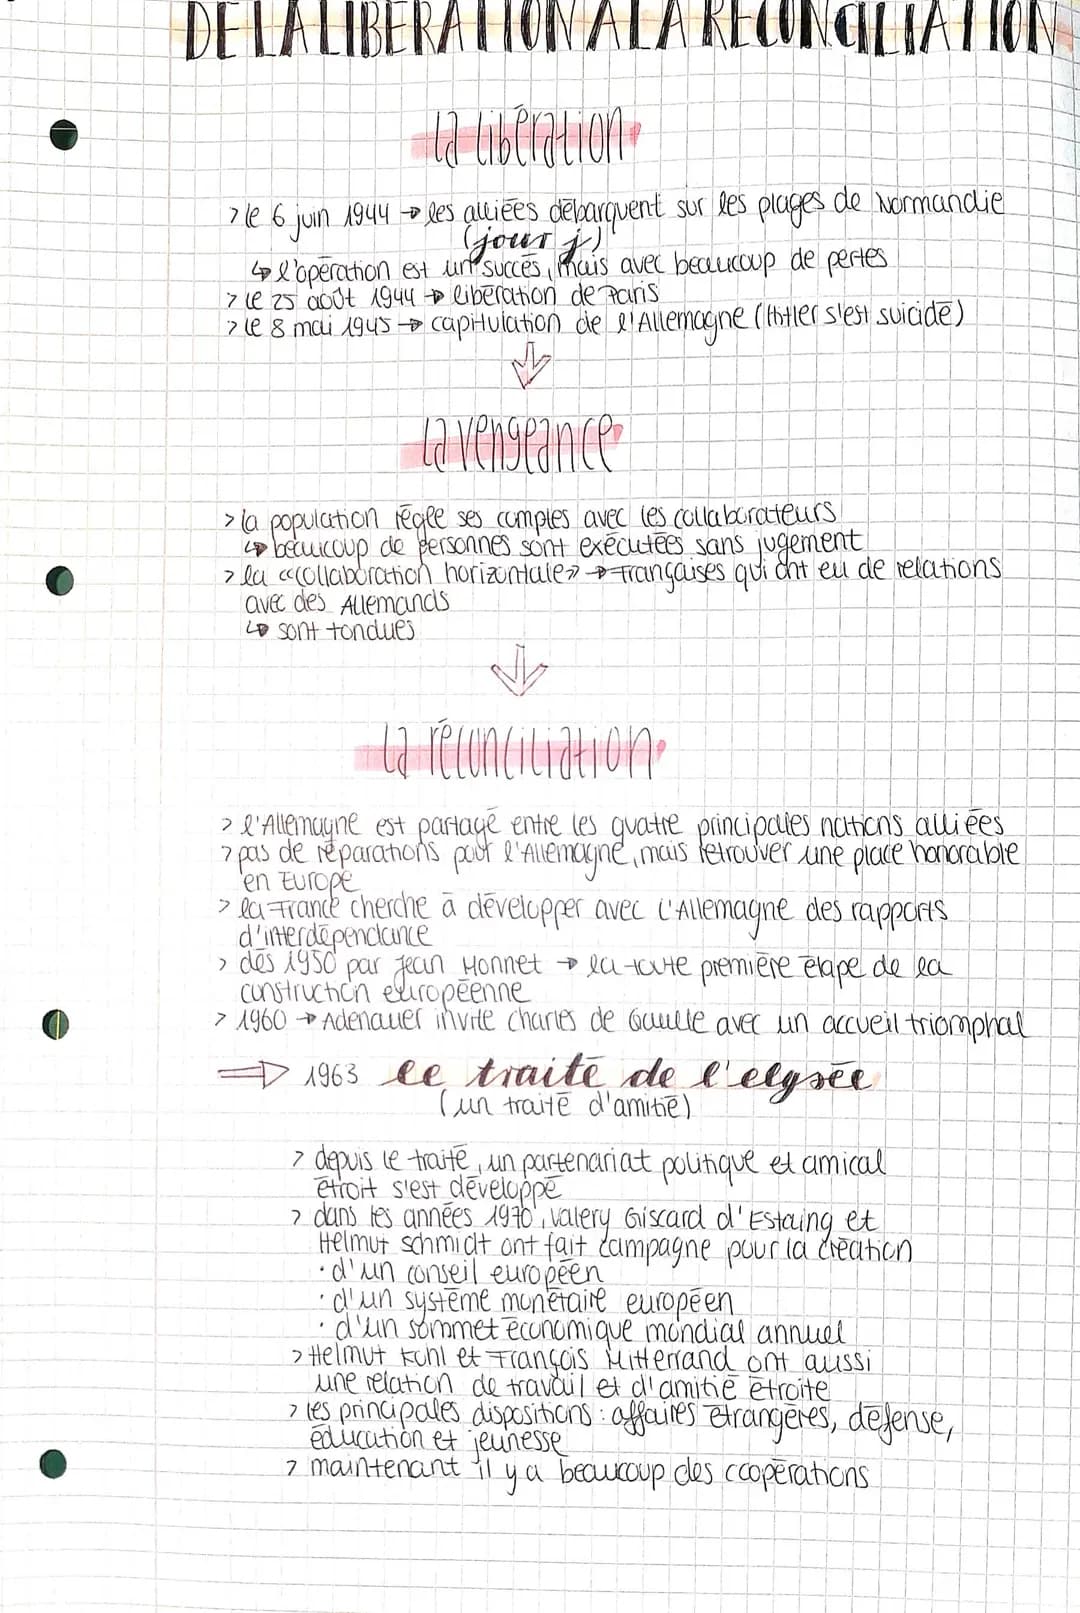 DE LA LIBERATION A LA RECONCILIATION
La libération
> le 6 juin 1944 → les alliées débarquent sur les plages de Normandie
(jour j)
↳ l'opération est un succès, mais avec beaucoup de pertes
> le 25 août 1944 → libération de Paris
> le 8 mai 1945 → capitulation de l'Allemagne (Hitler s'est suicidé)
La vengeance
> la population règle ses comptes avec les collaborateurs
↳ beaucoup de personnes sont exécutées sans jugement
> la «collaboration horizontale» → Françaises qui ont eu de relations
avec des Allemands
↳ sont tondues
La réconciliation
> l'Allemagne est partagé entre les quatre principales nations alliées
> pas de réparations pour l'Allemagne, mais retrouver une place honorable
en Europe
> la France cherche à développer avec l'Allemagne des rapports
d'interdépendance
> dès 1950 par Jean Monnet → la toute première étape de la
construction européenne
> 1960 → Adenauer invite Charles de Gaulle avec un accueil triomphal
⇒ 1963 le traité de l'elysée
(un traité d'amitié)
> depuis le traité, un partenariat politique et amical
étroit s'est développé
> dans les années 1970, Valery Giscard d'Estaing et
Helmut Schmidt ont fait campagne pour la création
· d'un conseil européen
· d'un système monétaire européen
· d'un sommet économique mondial annuel
> Helmut Kohl et François Mitterrand ont aussi
une relation de travail et d'amitié étroite
> les principales dispositions : affaires étrangères, défense,
éducation et jeunesse
> maintenant il y a beaucoup des coopérations